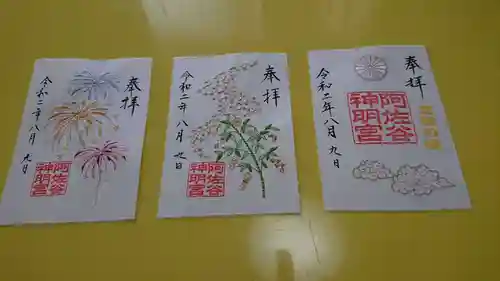 奉拝
令和二年八月九日
阿佐谷
神明宮
奉拝
令和二年八月九日
阿佐谷
神明宮
奉拝
令和二年八月九日
阿佐谷
神明宮